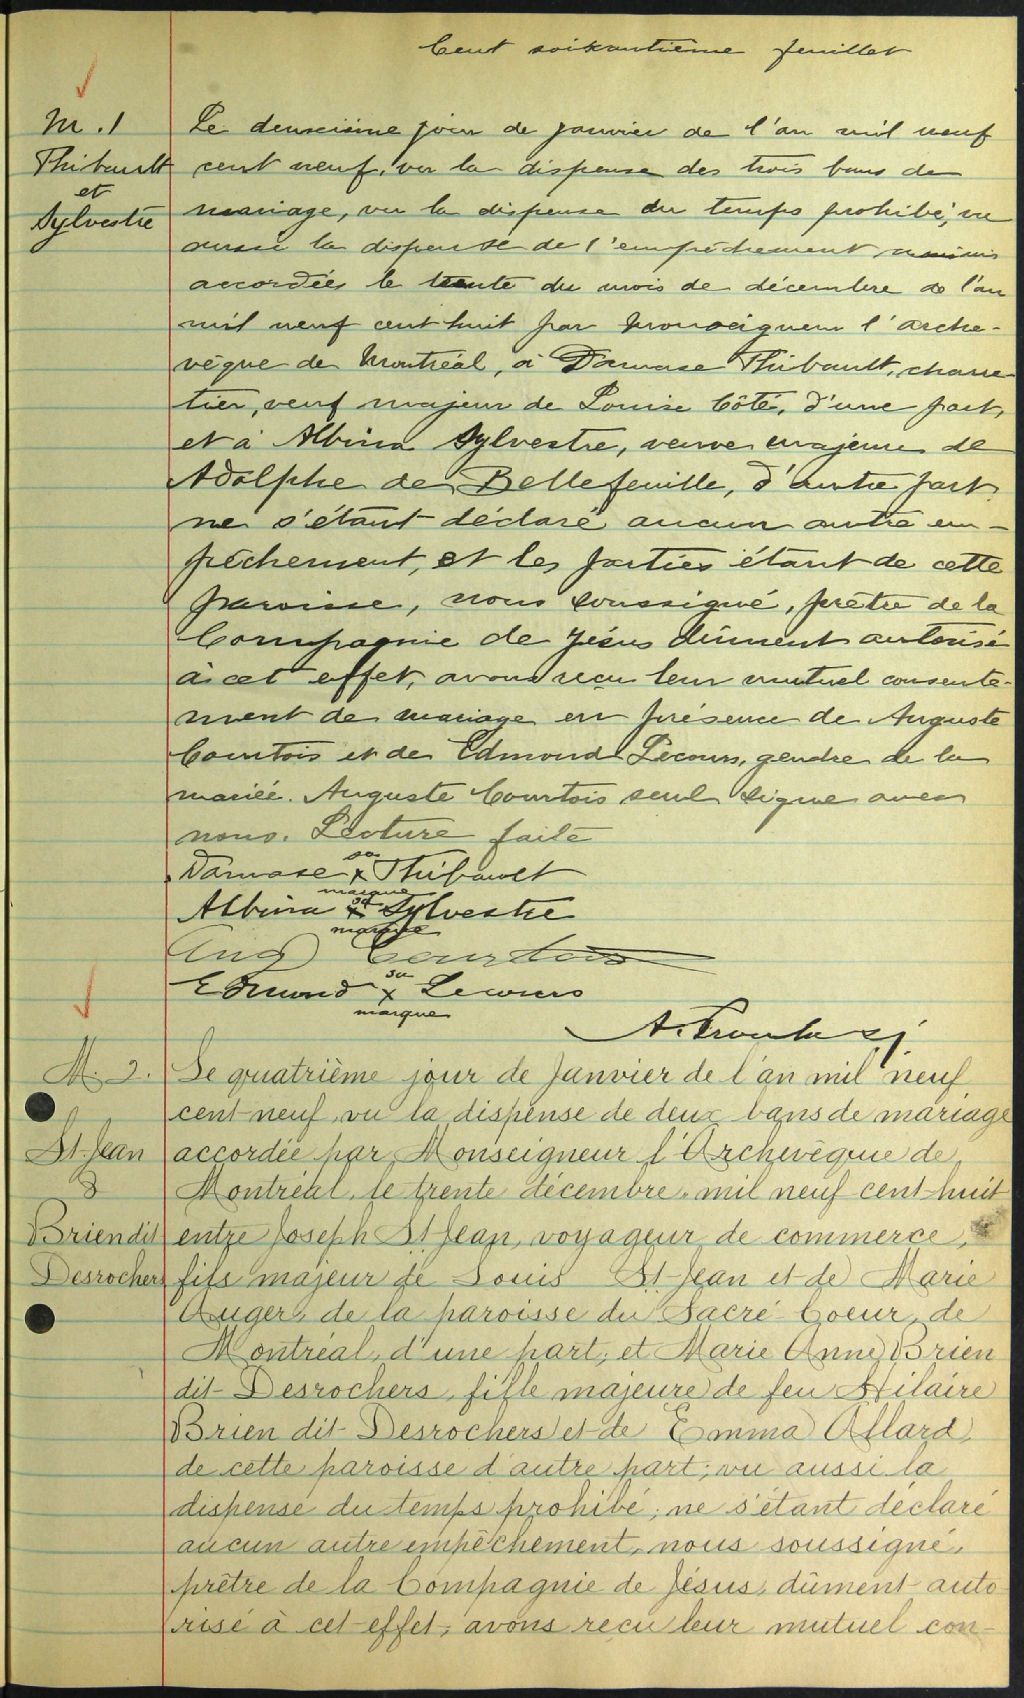 Cent soixantième feuillet
M. 1
Thibault
et
Sylvestre
Le deuxième jour de janvier de l'an mil neuf
cent neuf, vu la dispense des trois bans de
mariage, vu la dispense du temps prohibé, vu
aussi la dispense de l'empêchement
accordée le trente du mois de décembre de l'an
mil neuf cent huit par Monseigneur l'arche-
vêque de Montréal, à Damase Thibault, charre-
tier, veuf majeur de Louise Côté, d'une part,
et à Albina Sylvestre, veuve majeure de
Adolphe de Bellefeuille, d'autre part
ne s'étant déclaré aucun autre em-
pêchement, et les parties étant de cette
paroisse, nous soussigné, prêtre de la
Compagnie de Jésus dûment autorisé
à cet effet, avons reçu leur mutuel consente-
ment de mariage en présence de Auguste
Courtois et de Edmond Lecours, gendre de la
mariée. Auguste Courtois seul signe avec
nous. Lecture faite
Damase sa x marque Thibault
Albina sa x marque Sylvestre
Aug Courtois
Edmond sa x marque Lecours
A. sj
M. 2.
St. Jean
&
Brien dit
Desrochers
Le quatrième jour de Janvier de l'an mil neuf
cent neuf, vu la dispense de deux bans de mariage
accordée par Monseigneur l'Archevêque de
Montréal, le trente décembre mil neuf cent huit
entre Joseph St Jean, voyageur de commerce,
fils majeur de Louis St-Jean et de Marie
Auger, de la paroisse du Sacré-Coeur, de
Montréal, d'une part; et Marie Anne Brien
dit Desrochers, fille majeure de feu Hilaire
Brien dit Desrochers et de Emma Allard,
de cette paroisse d'autre part; vu aussi la
dispense du temps prohibé; ne s'étant déclaré
aucun autre empêchement, nous soussigné,
prêtre de la Compagnie de Jésus, dûment auto
risé à cet effet, avons reçu leur mutuel con-